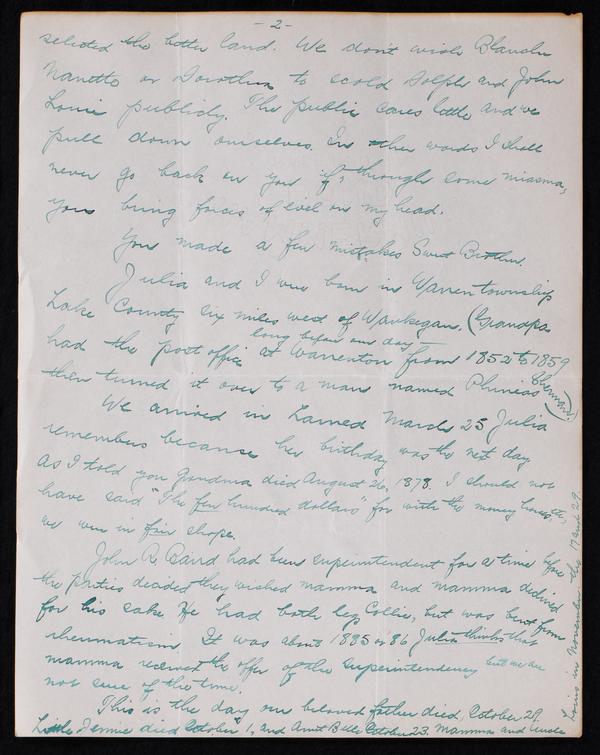 - 2 -
selected the better land. We don't wish Blanche
Nanette or Dorothea to scold Dolph and John
Louis publicly. The public cares little and we
pull down ourselves. In other words I shall
never go back on you if, through some miasma,
you bring forces of evil on my head.
You made a few mistakes Sweet Brother.
Julia and I were born in Warren township
Lake County six miles west of Waukegan. (Grandpa
long before our day
had the post office at Warrenton from 1852 to 1859
then turned it over to a man named Phineas Sherman.)
We arrived in Larned March 25 Julia
remembers because her birthday was the next day
As I told you Grandma died August 26, 1878. I should not
have said "The few hundred dollars" for with the money
we were in fair shape.
John R. Baird had been superintendent for a time before
the parties decided they wished mamma and mamma declined
for his sake. He had both legs but was bent from
rheumatism. It was about 1885 or 86 Julia thinks that
mamma received the offer of the superintendency but we are
not sure of the time.
This is the day our beloved father died, October 29.
Little Jennie died October 1, and Aunt Belle October 23. Mamma and Uncle
Louis in November the 17 and 29.